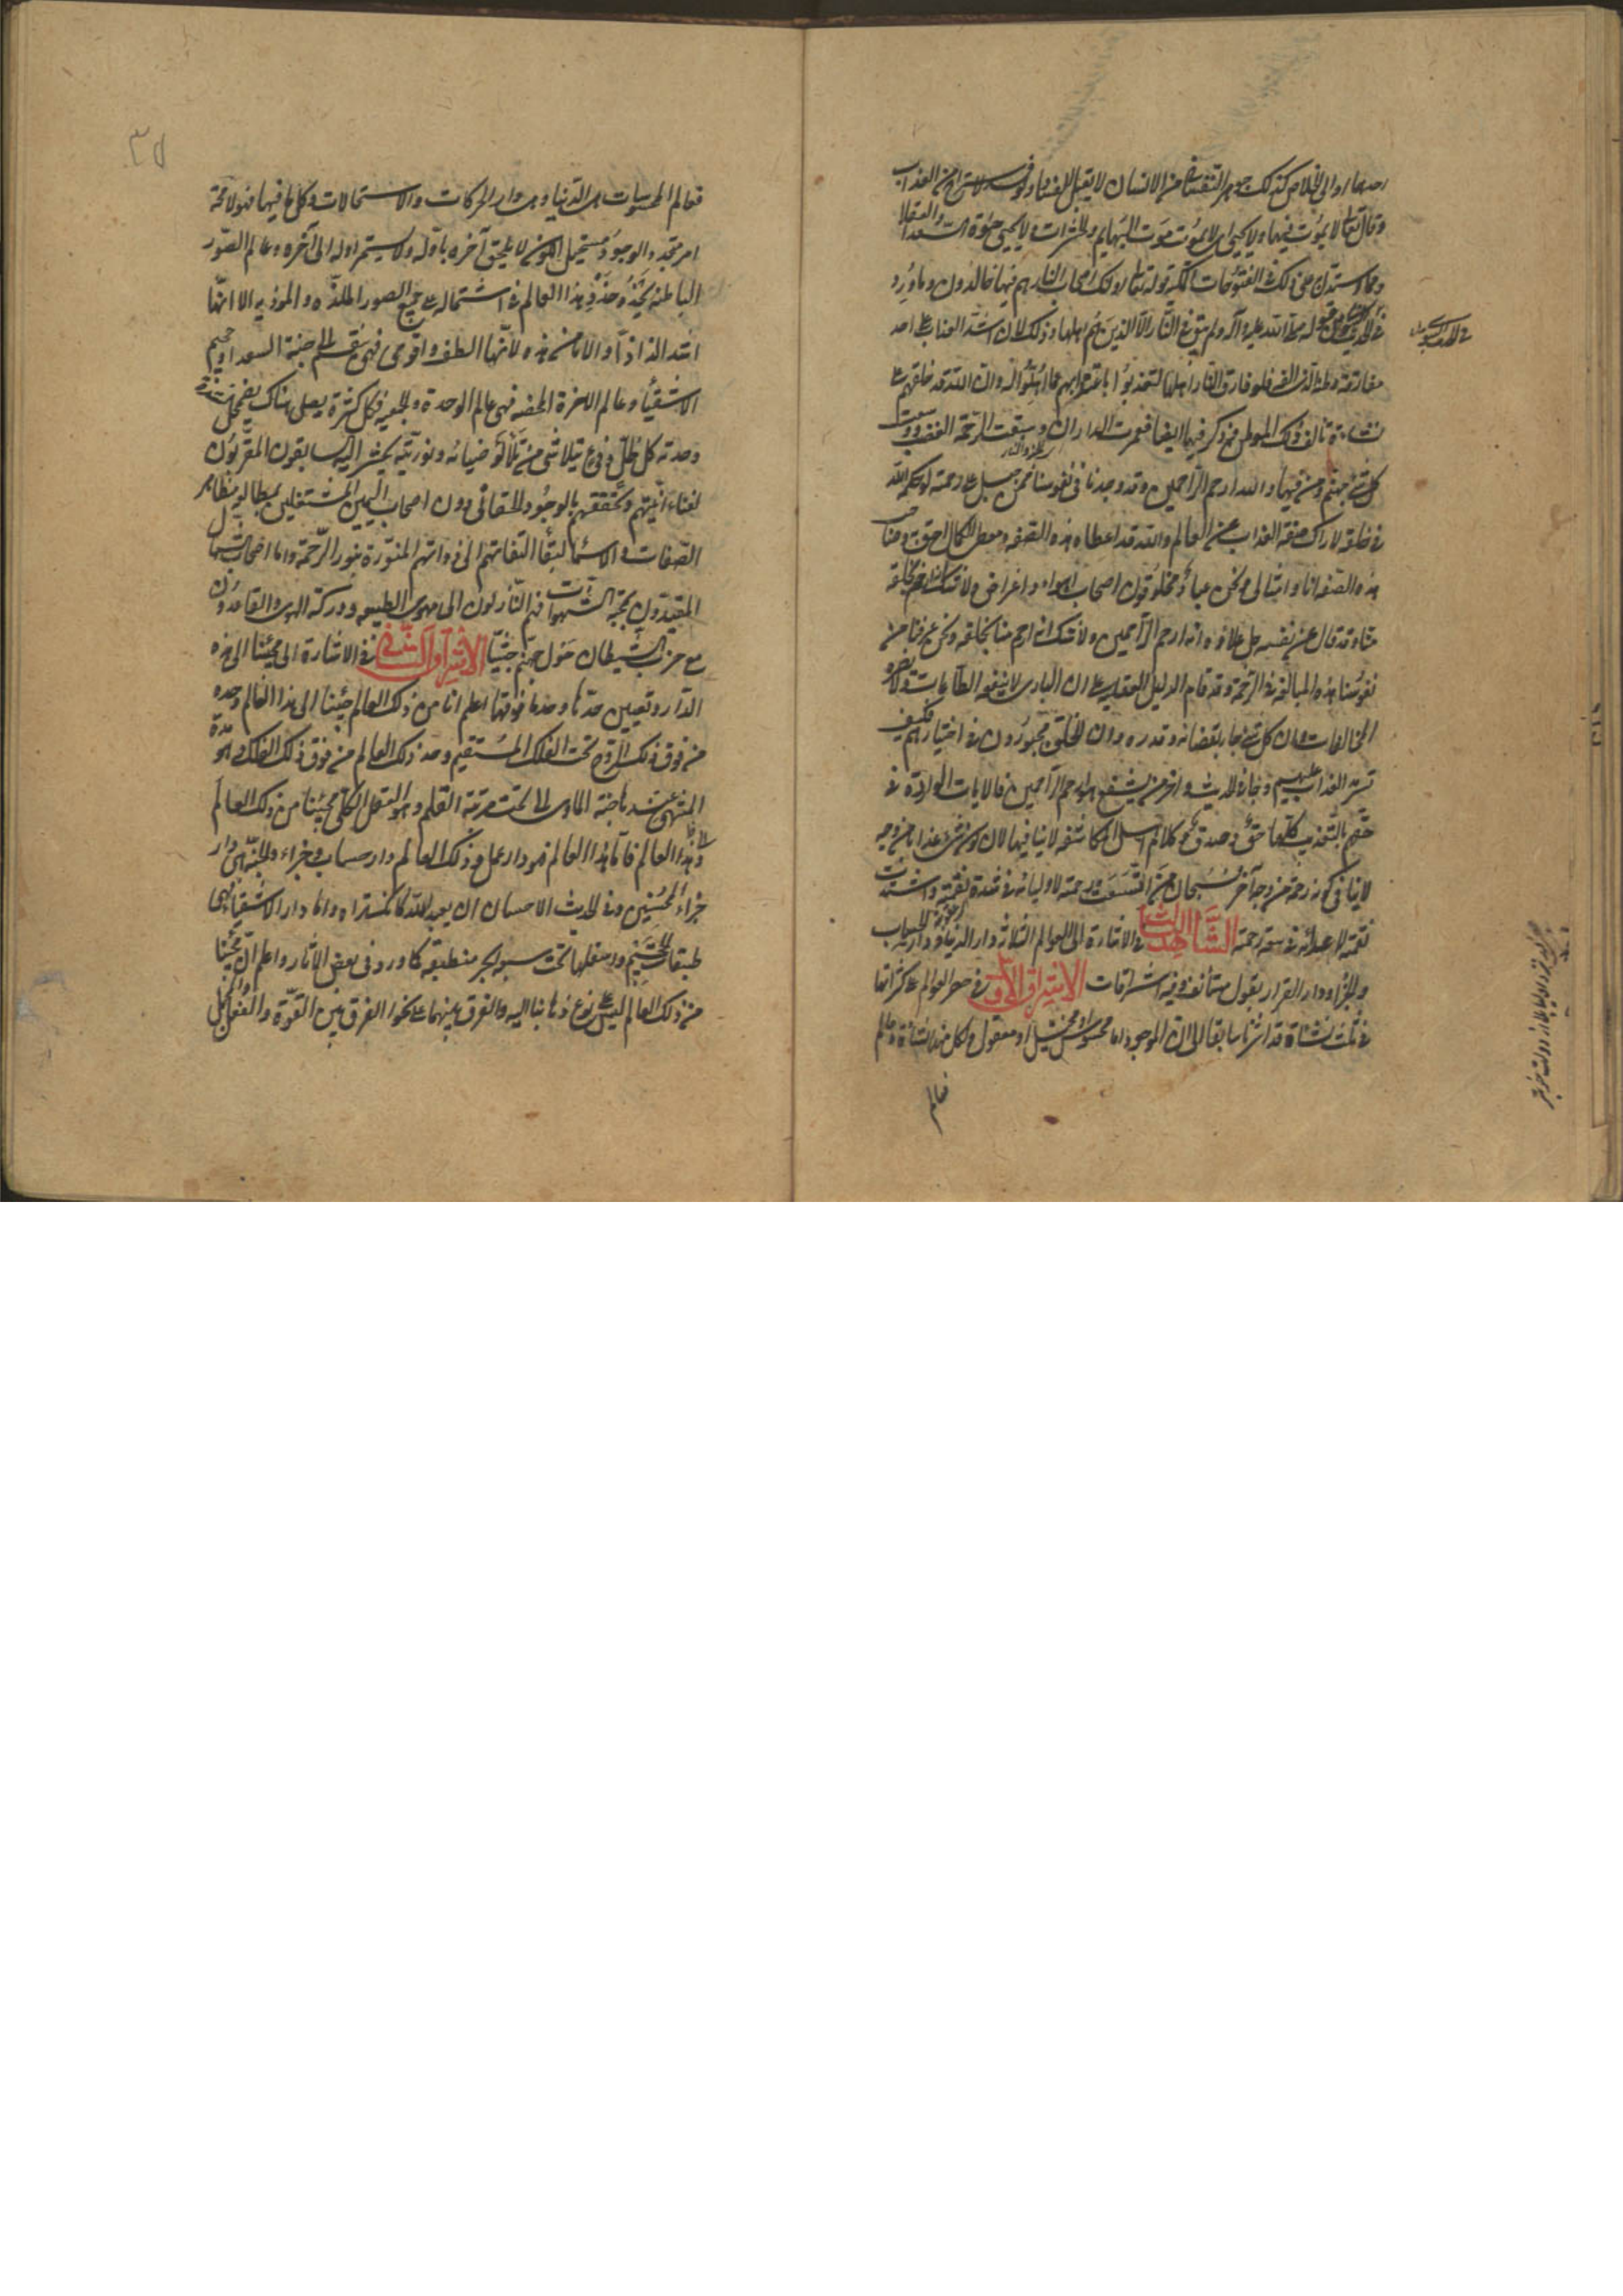 وقال تعالى لا يموت فيها ولا يحيى اى لا يموت موت البهائم والحشرات ولا يحيى حيوة السعداء والعقلا
ومما استدل فى ذلك الفتوحات المكية قوله تعالى اولئك اصحاب النار هم فيها خالدون وما ورد
صلى الله عليه وآله ولم يبق فى النار الا الذين هم اهلها وذلك لان اشد العذاب على احد
مفارقة وطنه الذى الفه فلو فارق النار اهلها لتعذبوا باغترابهم عما اهلوا له وان الله قد خلقهم على
نشاءة تألف ذلك الموطن فعمرت الداران وسبقت الرحمة الغضب ووسعت
كل شئ جهنم ومن فيها والله ارحم الراحمين وقد وجدنا فى نفوسنا ممن جبل على الرحمة لو حكمه الله
فى خلقه لازال صفة العذاب عن العالم والله قد اعطاه هذه الصفة ومعطى الكمال احق به وصاحب
هذه الصفة انا وامثالى ونحن عباد مخلوقون اصحاب اهواء واغراض ولا شك انه ارحم بخلقه
منا وقد قال عن نفسه جل علاؤه انه ارحم الراحمين ولا شك انه ارحم منا بخلقه ونحن عرفنا من
نفوسنا هذه المبالغة فى الرحمة وقد قام الدليل العقلى على ان البارى لا ينفعه الطاعات ولا يضره
المخالفات وان كل شئ جار بقضائه وقدره وان الخلق مجبورون فى اختيارهم فكيف
يسرمد العذاب عليهم وجاء فى الحديث وآخر من يشفع هو ارحم الراحمين فالايات الواردة فى
حقهم بالتعذيب كلها حق وصدق وكلام اهل المكاشفة لا ينافيها لان كون شئ عذابا من وجه
لا ينافى كونه رحمة من وجه آخر فسبحان من اتسعت رحمته لاوليائه فى شدة نقمته واشتدت
نقمته لاعدائه فى سعة رحمته الشاهد الثالث فى الاشارة الى العوالم الثلاثة دار الدنيا ودار الحساب
والجزاء ودار القرار بقول مستأنف وفيه اشراقات الاشراق الاول فى حصر العوالم على كثراتها
فى ثلث نشاة قد اشرنا سابقا الى ان الموجود اما محسوس او متخيل او معقول ولكل منها نشاءة وعالم
فعالم
٣٥
فعالم المحسوسات هى الدنيا وهى دار الحركات والاستحالات وكل ما فيها فهو لا محة
امر متجدد الوجود مستحيل الكون لا يلحق آخره باوله ولا يستمر اوله الى آخره وعالم الصور
الباطنة يحذو حذو هذا العالم فى اشتماله على جميع الصور الملذة والموذية الا انها
اشد الذاذا وايلاما من هذه لانها الطف واقوى فهى ينقسم الى جنة السعداء وجحيم
الاشقياء وعالم الاخرة المحضة فهى عالم الوحدة والجمعية فكل كثرة يصل هناك يضمحل فى
وحدته كل ظل وفئ يتلاشى من تلألؤ ضيائه ونوريته يحشر اليه السابقون المقربون
لفناء انيتهم وتحققهم بالوجود الحقانى دون اصحاب اليمين المشتغلين بمطالعة مظاهر
الصفات والاسماء لبقاء التفاتهم الى ذواتهم المنورة بنور الرحمة واما اصحاب الشمال
المقيدون بمحبة الشهوات فهم النازلون الى مهوى الطبيعة ودركة الهوى والقاعدون
مع حزب الشيطان حول جهنم جثيا الاشراق الثانى فى الاشارة الى مجيئنا الى هذه
الدار وتعيين حدها وحد ما فوقها اعلم انا من ذلك العالم جئنا الى هذا العالم وحده
من فوق فلك البروج تحت الفلك المستقيم وحد ذلك العالم من فوق ذلك الفلك وهو سدرة
المنتهى عندها جنة المأوى الى تحت مرتبة القلم وهو العقل الكلى مجيئنا من ذلك العالم
الى هذا العالم فاما هذا العالم فهو دار عمل وذلك العالم دار حساب وجزاء والجنة هى دار
جزاء المحسنين وفى الحديث الاحسان ان يعبد الله كانك تراه واما دار الاشقياء فهى
طبقات الجحيم واسفلها تحت سبعة ابحر منطبقة كما ورد فى بعض الآثار واعلم ان مجيئنا
من ذلك العالم ليس على نوع ذهابنا اليه والفرق بينهما على نحو الفرق بين القوة والفعل